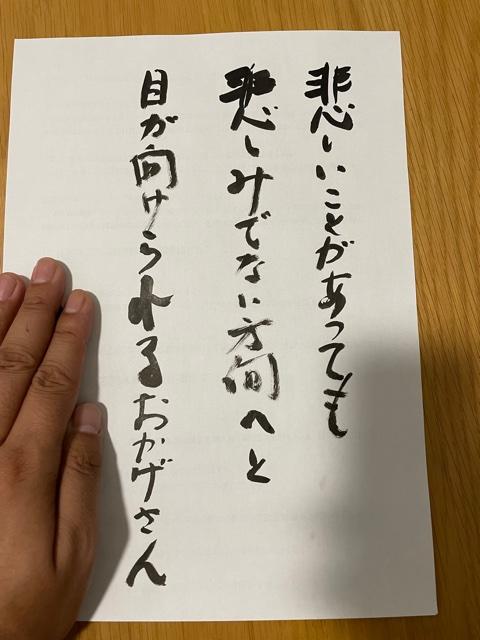 悲しいことがあっても
悲しみでない方向へと
目が向けられるおかげさん